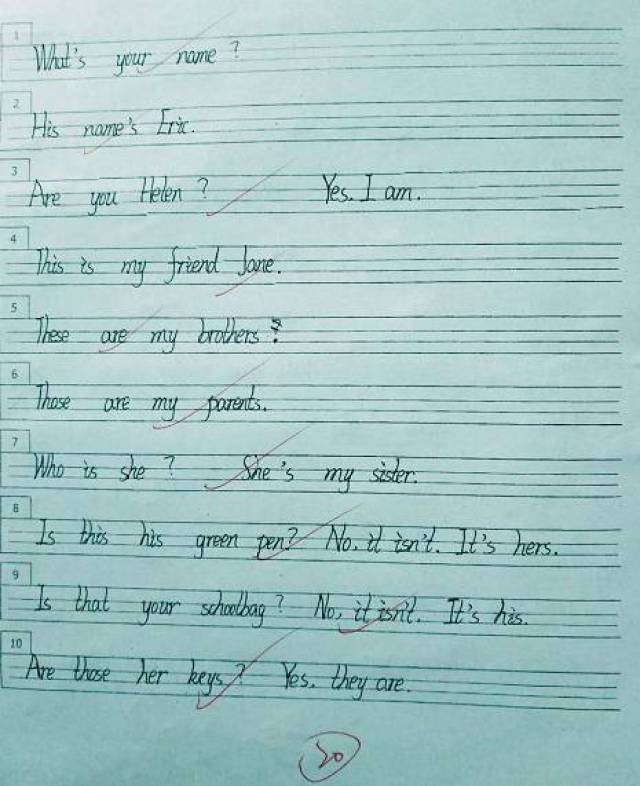 1
What's your name ?
2
His name's Eric.
3
Are you Helen ? Yes. I am.
4
This is my friend Jane.
5
These are my brothers
6
Those are my parents.
7
Who is she ? She's my sister.
8
Is this his green pen? No. it isn't. It's hers.
9
Is that your schoolbag ? No, it isn't. It's his.
10
Are those her keys ? Yes. they are.
20